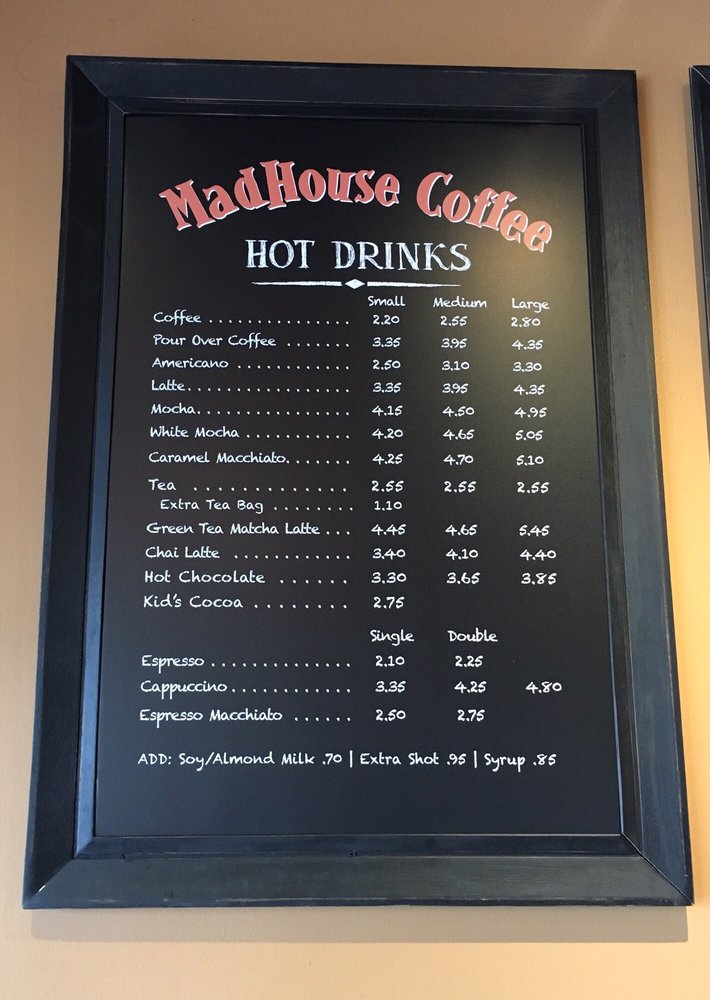 MadHouse Coffee
HOT DRINKS
Small Medium Large
Coffee ............... 2.20 2.55 2.80
Pour Over Coffee ....... 3.35 3.95 4.35
Americano ............ 2.50 3.10 3.30
Latte................. 3.35 3.95 4.35
Mocha................ 4.15 4.50 4.95
White Mocha ........... 4.20 4.65 5.05
Caramel Macchiato....... 4.25 4.70 5.10
Tea .............. 2.55 2.55 2.55
Extra Tea Bag ........ 1.10
Green Tea Matcha Latte ... 4.45 4.65 5.45
Chai Latte ............ 3.40 4.10 4.40
Hot Chocolate ...... 3.30 3.65 3.85
Kid's Cocoa ........ 2.75
Single Double
Espresso .............. 2.10 2.25
Cappuccino............ 3.35 4.25 4.80
Espresso Macchiato ...... 2.50 2.75
ADD: Soy/Almond Milk .70 | Extra Shot .95 | Syrup .85